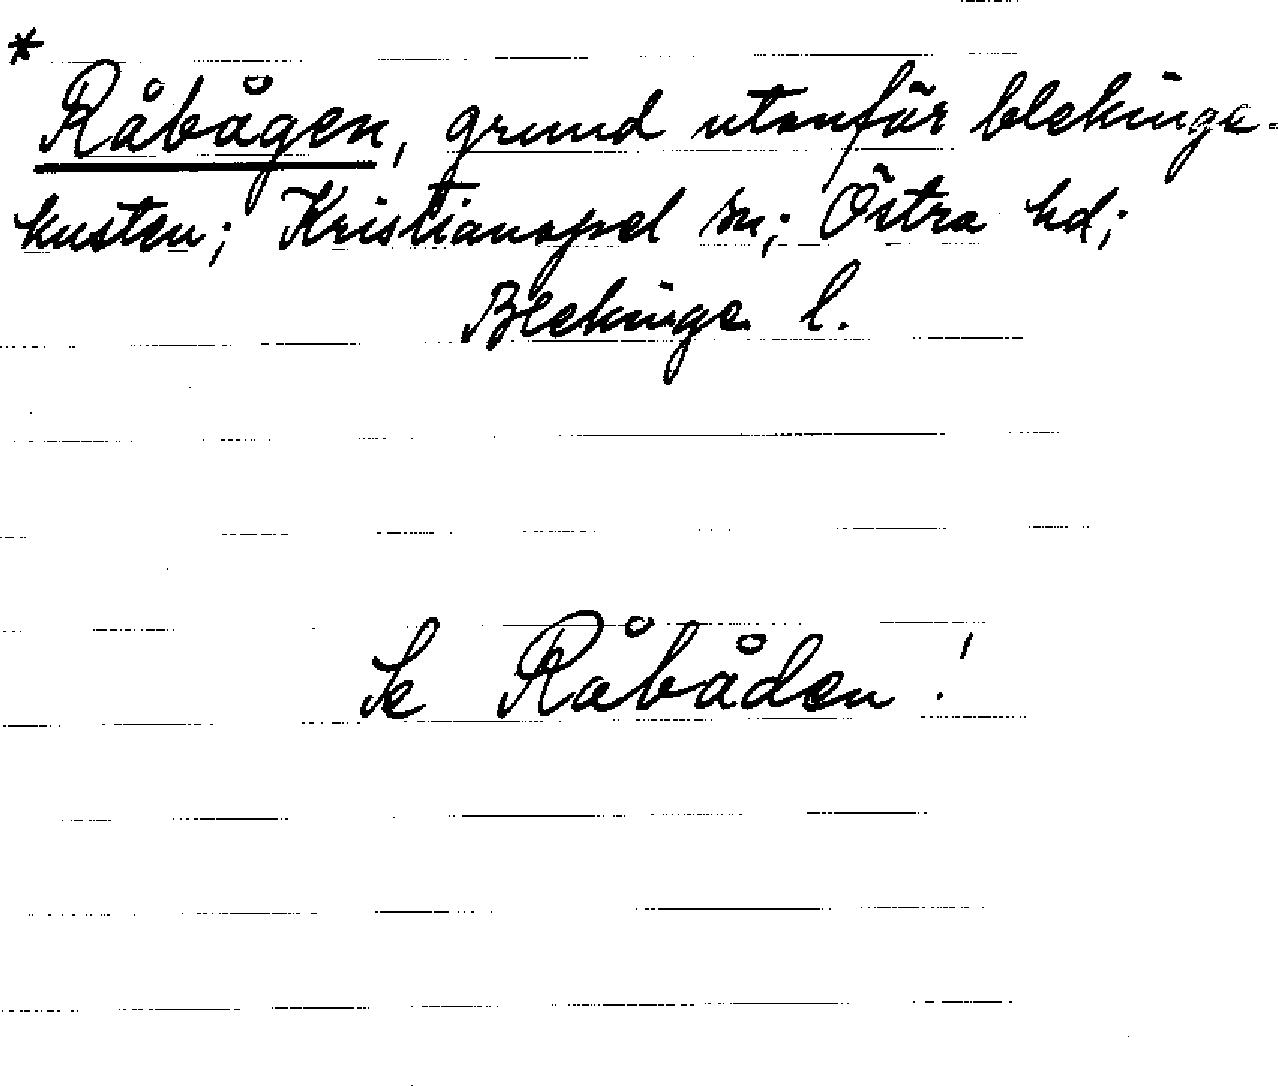 *
Råbågen, grund utanför blekinge-
kusten; Kristianopel sn; Östra hd;
Blekinge l.
Se Råbåden!